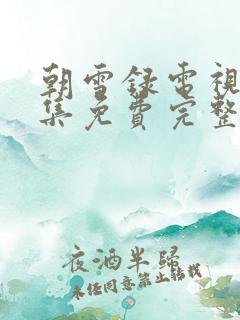 朝雪錄電視
集免費完整
夜酒半歸
未经同意禁止转载